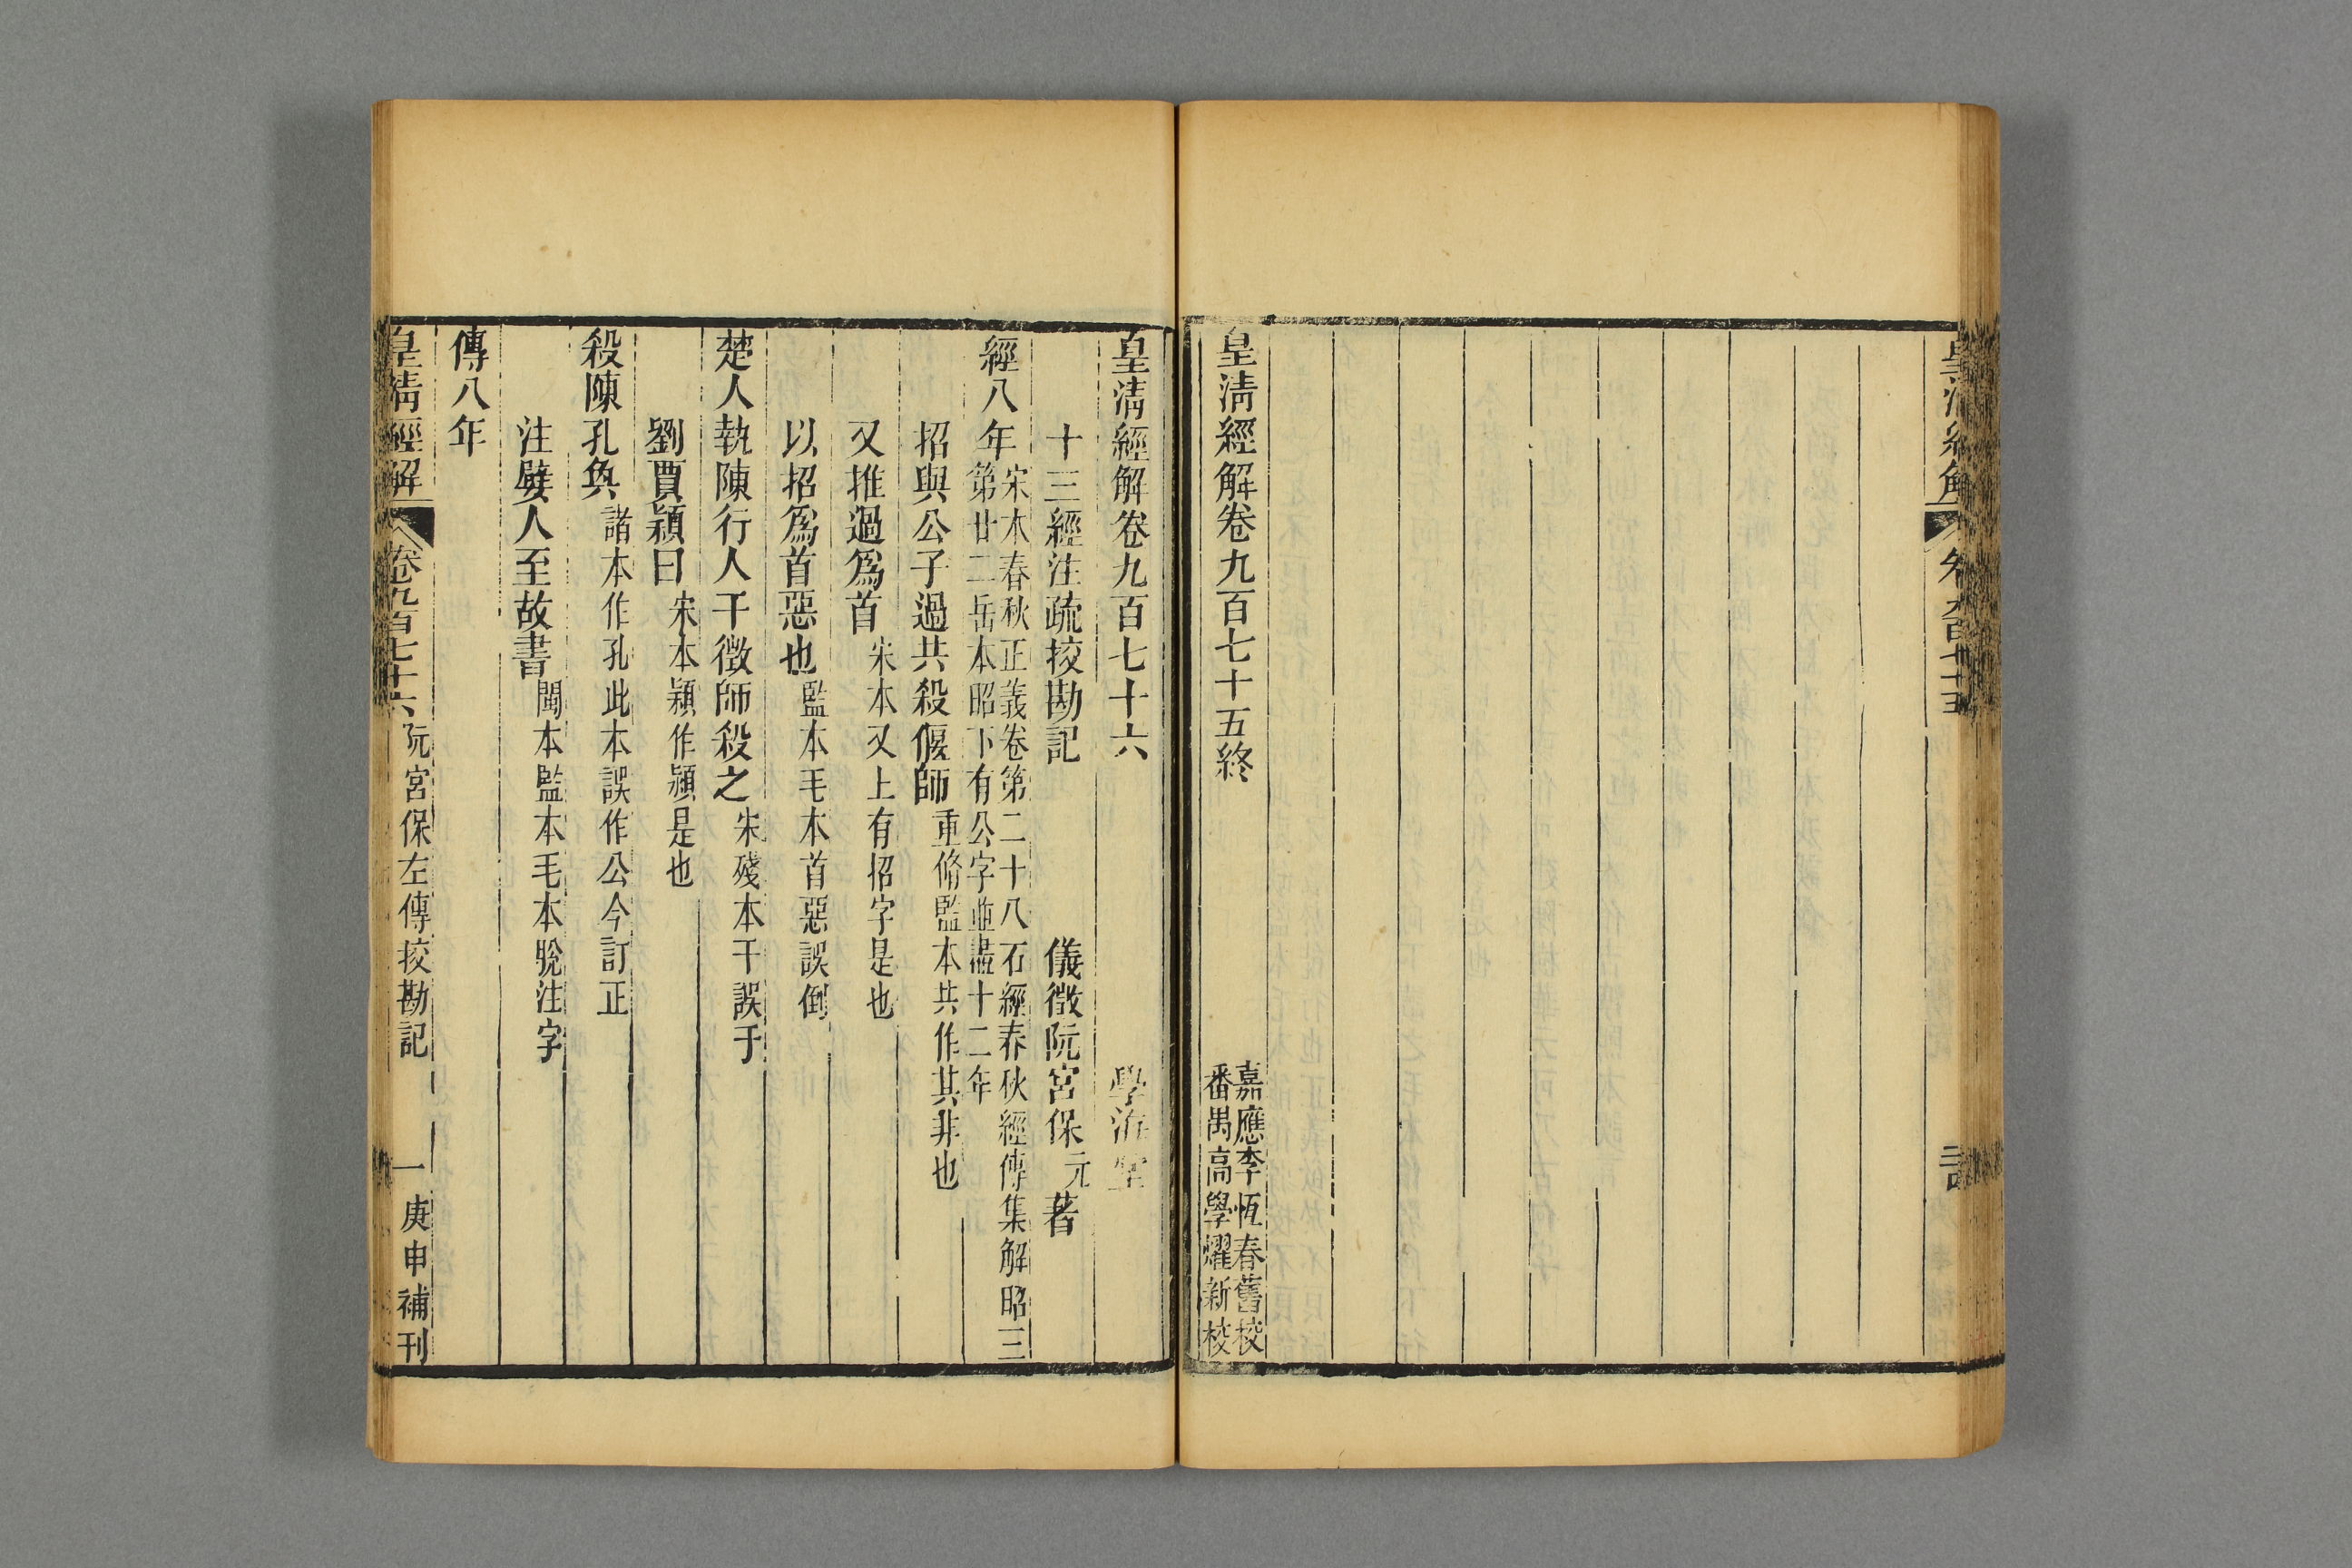 皇清經解卷九百七十五終
嘉應李恆春舊校
番禺高學燿新校
皇清經解卷九百七十六
學海堂
十三經注疏挍勘記
儀徵阮宮保元著
經八年宋本春秋正義卷第二十八石經春秋經傳集解昭三
第廿二岳本昭下有公字並盡十二年
招與公子過共殺偃師重脩監本共作其非也
又推過爲首宋本又上有招字是也
以招爲首惡也監本毛本首惡誤倒
楚人執陳行人干徵師殺之宋殘本干誤于
劉賈穎曰宋本穎作潁是也
殺陳孔奐諸本作孔此本誤作公今訂正
注嬖人至故書閩本監本毛本脫注字
傳八年
皇清經解
卷九百七十六
阮宮保左傳挍勘記
一
庚申補刊